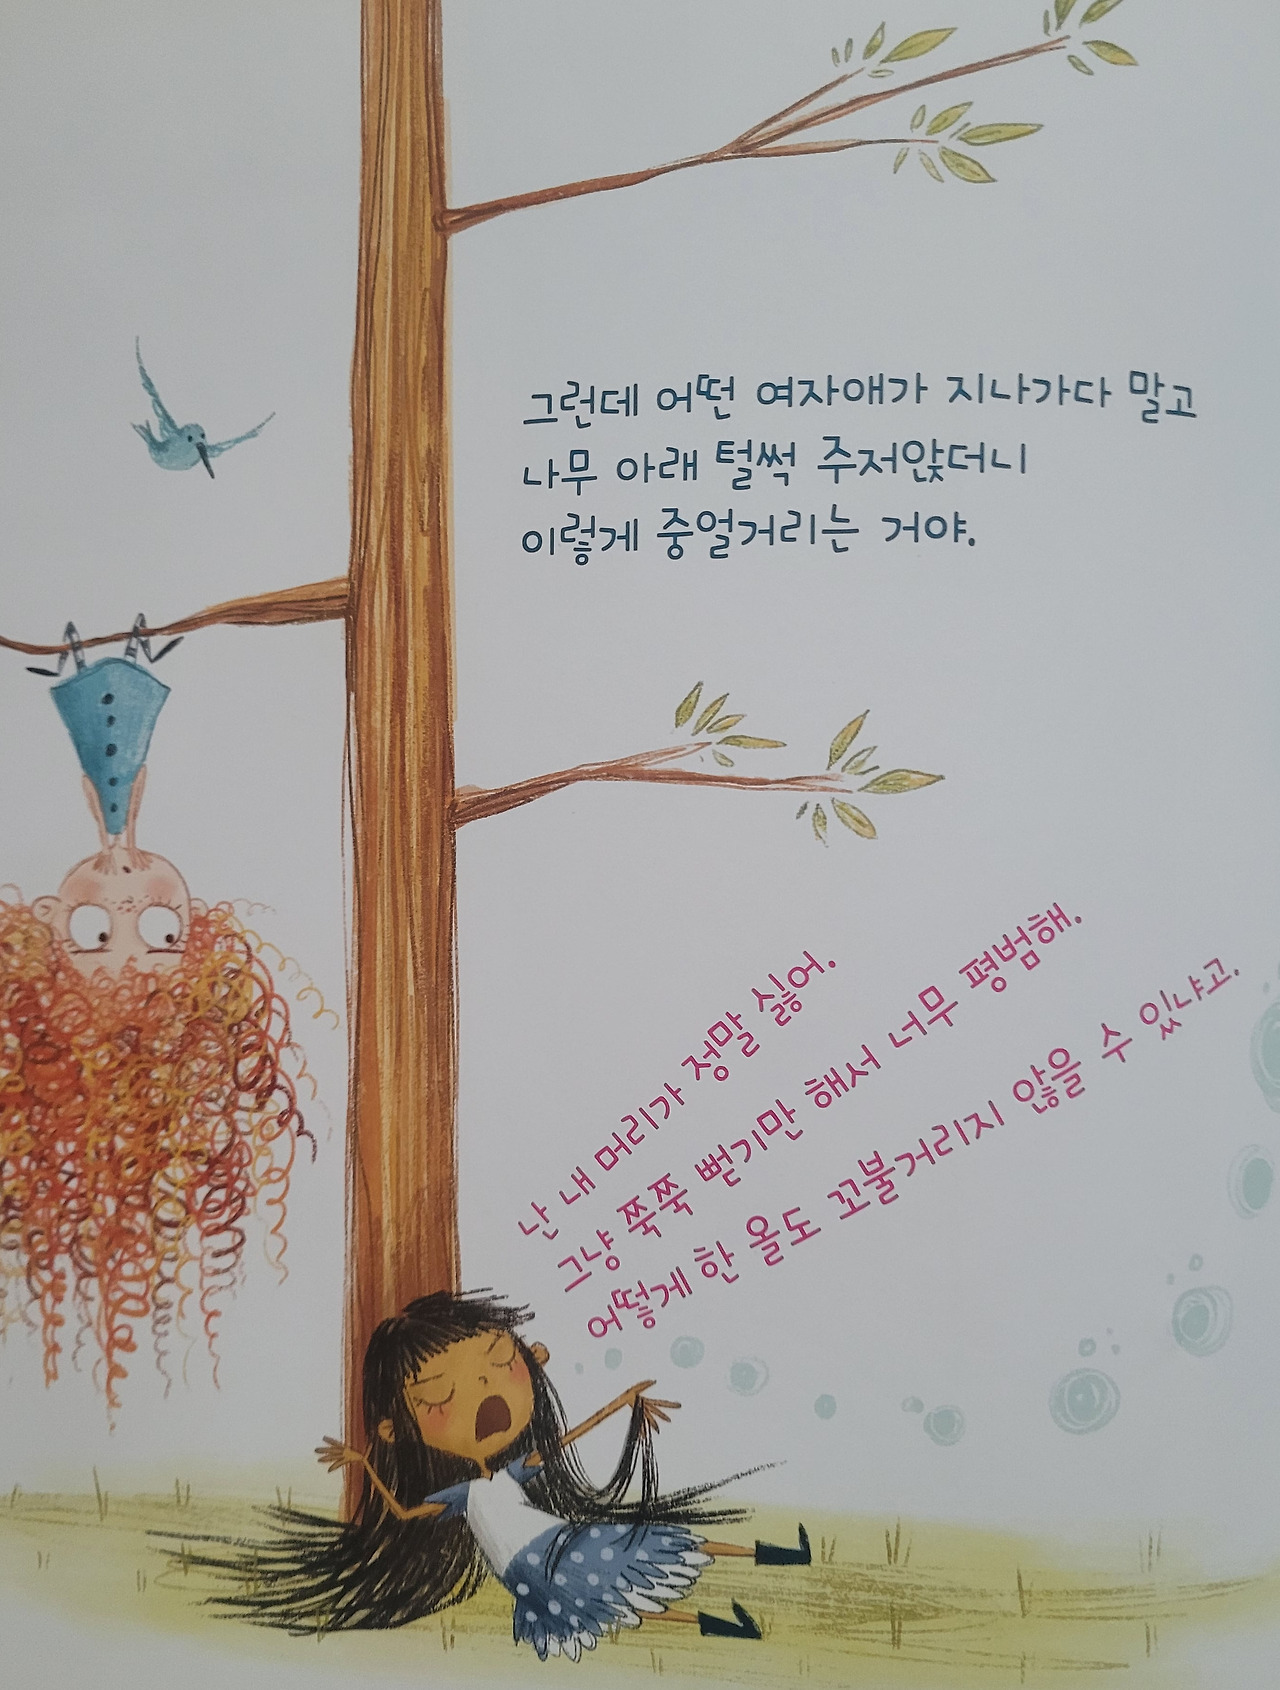 그런데 어떤 여자애가 지나가다 말고
나무 아래 털썩 주저앉더니
이렇게 중얼거리는 거야.
난 내 머리가 정말 싫어.
그냥 쭉쭉 뻗기만 해서 너무 평범해.
어떻게 한 올도 꼬불거리지 않을 수 있냐고.